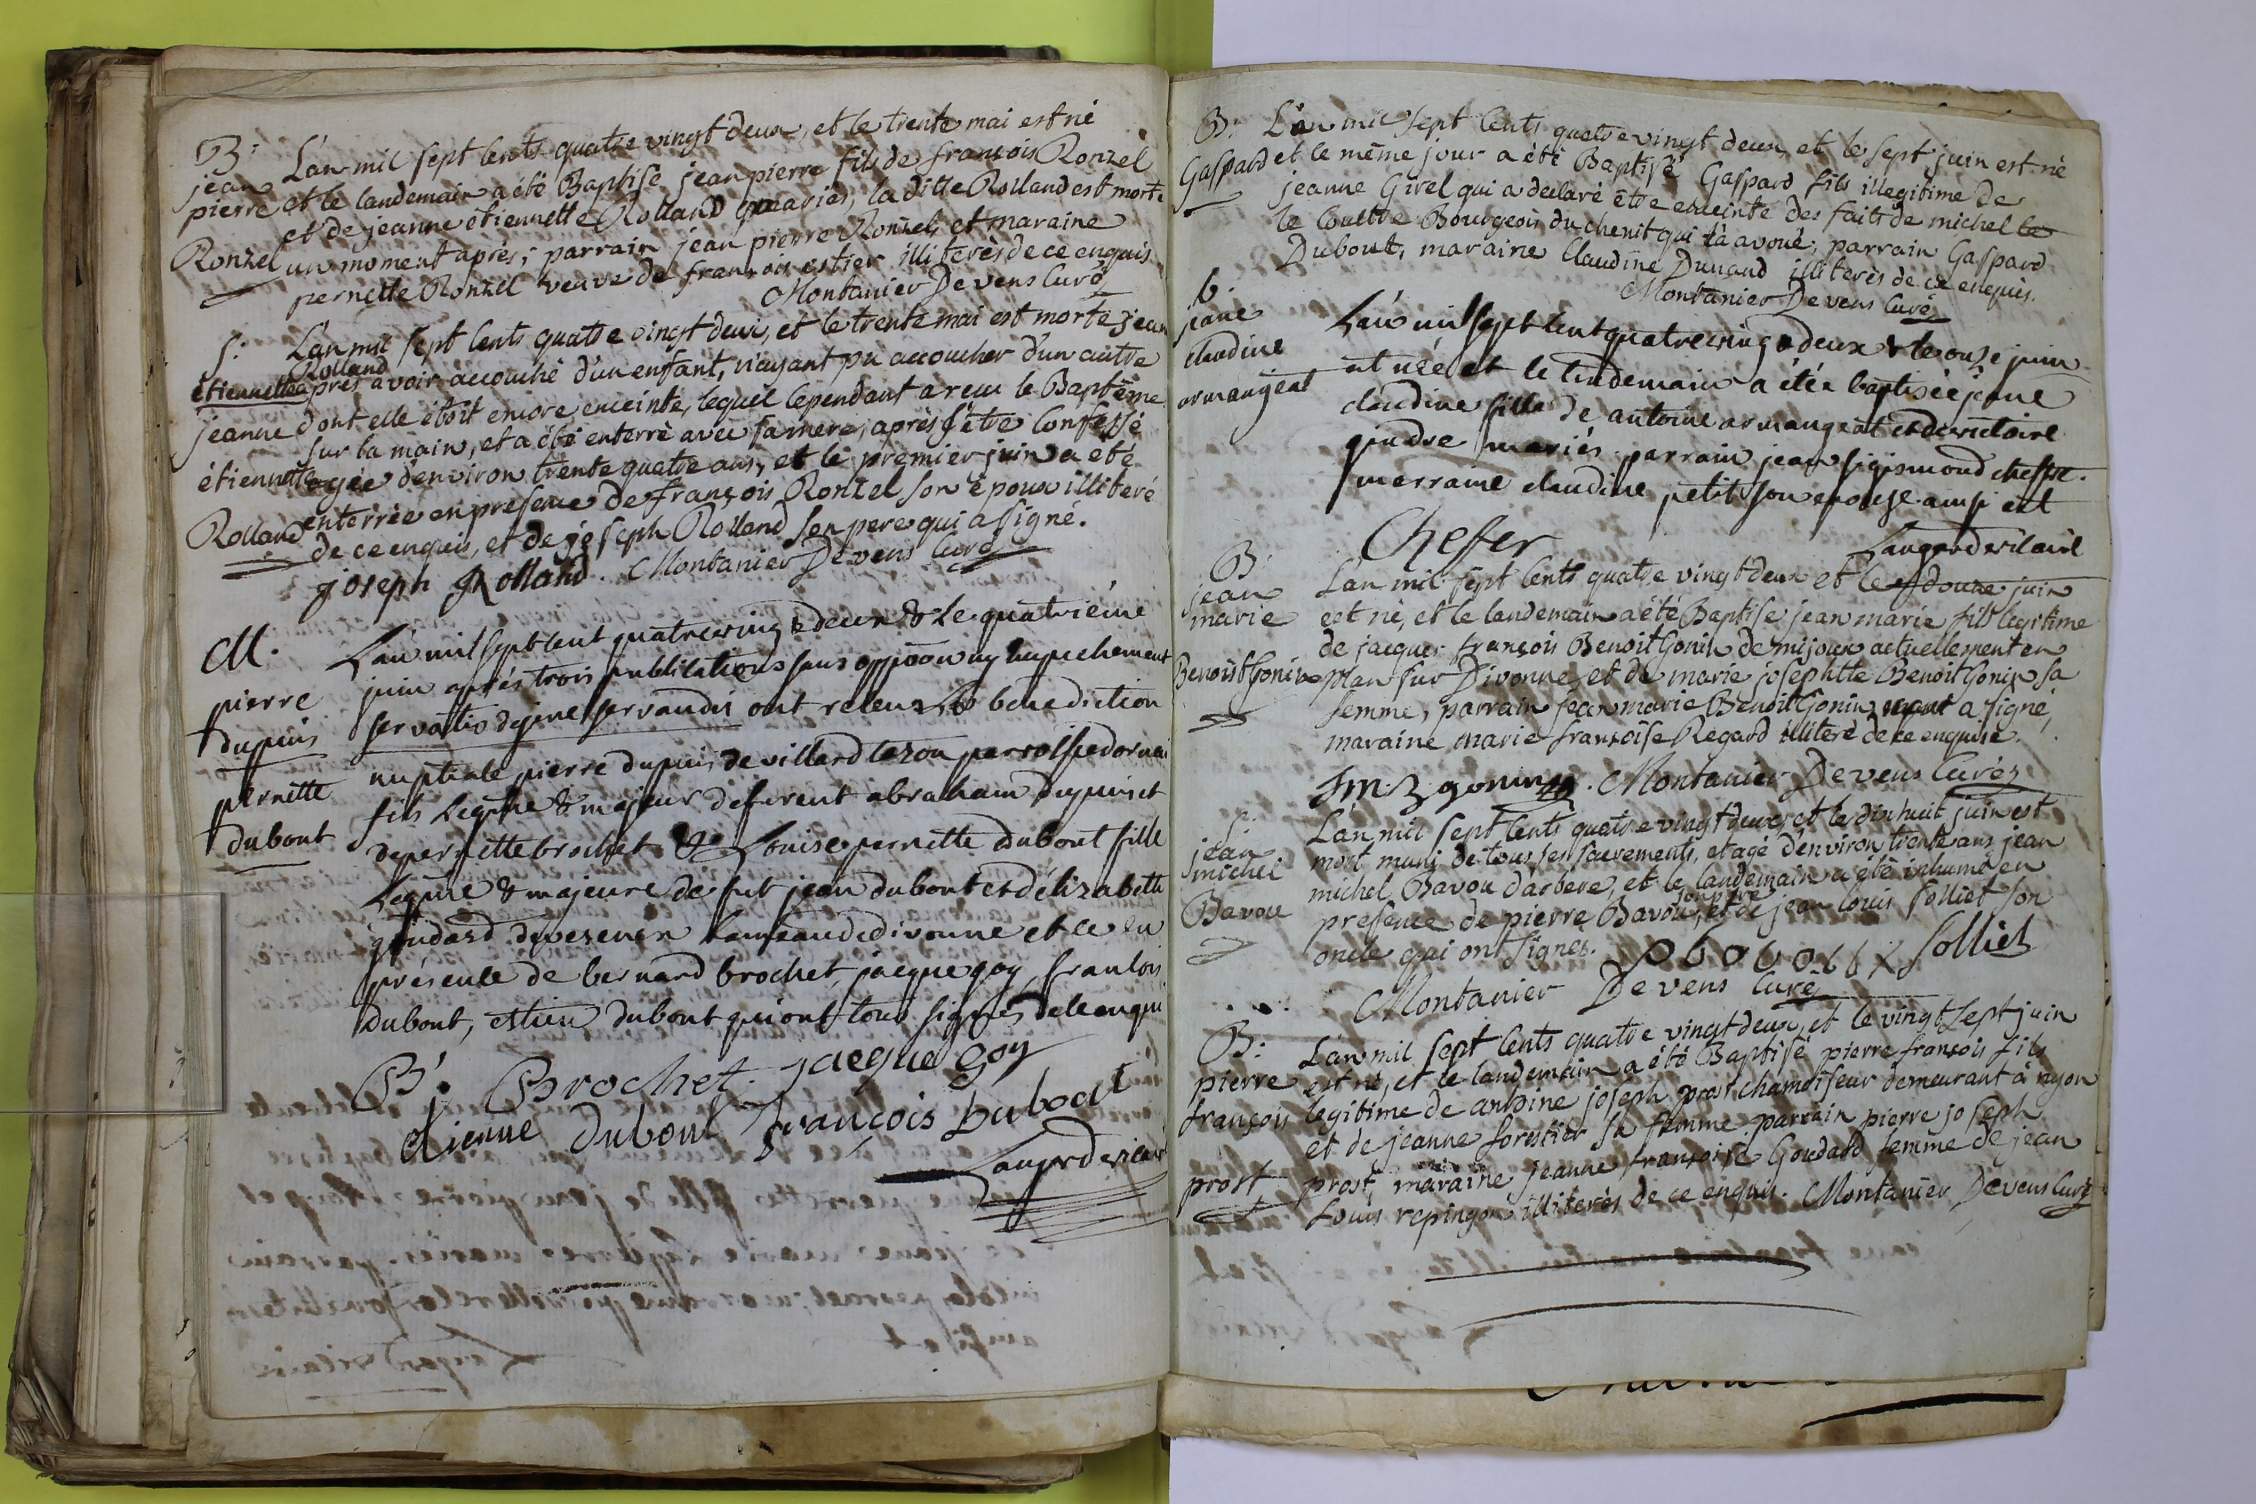 B:
jean
pierre
Ronzel
L'an mil sept cents quatre vingt deux, et le trente mai est né
et le landemain a été Baptisé jean pierre fils de françois Ronzel
et de jeanne étiennette Rolland mariés, la ditte Rolland est morte
un moment après; parrain jean pierre Ronzel, et maraine
pernette Ronzel veuve de françois estier illiterès de ce enquis.
Montanier Devens Curé
S:
étiennette
jeanne
étiennette
Rolland
L'an mil sept cents quatre vingt deux, et le trente mai est morte jean
Rolland
après avoir accouché d'un enfant, n'ayant pu accoucher d'un autre
dont elle étoit encore enceinte, lequel cependant a reçu le Baptême
sur la main, et a été enterré avec sa mere, après s'être Confessé
agée d'environ trente quatre ans, et le premier juin a eté
enterrée en presence de françois Ronzel son époux illiteré
de ce enquis, et de joseph Rolland son pere qui a signé.
joseph Rolland. Montanier Devens Curé
M.
pierre
dupuis
pernette
dubout
L'an mil sept cent quatre vingt deux & le quatriéme
juin aprés trois publications sans oppôon ny empechement
servatis de jure servandis ont recu la benediction
nuptiale pierre dupuis de villard tezon parroisse dornai
fils legime & majeur de feu abraham dupuis et
de pernette brochet & Louise pernette dubout fille
legime & majeure de fut jean dubout et d'élizabeth
goudard de vesenex hameau de divonne et ce en
présence de bernard brochet, jacque goy, francois
dubout, estien dubout qui ont tous signés de ce enqui
B: Brochet. jacque goy
etienne Dubout françois Dubout
B:
Gaspard
L'an mil sept cents quatre vingt deux, et le sept juin est né
et le même jour a été Baptisé Gaspard fils illegitime de
jeanne Girel qui a declaré être enceinte des faits de michel le
le Coultre Bourgeois du chenit qui l'a avoué; parrain Gaspard
Dubout, maraine Claudine Dunand illiterès de ce enquis.
Montanier Devens Curé
b.
jeane
claudine
armangeat
L'an mil sept cent quatre vingt deux & le onze juin
et née et le lendemain a étéz baptisée jeane
claudine fille de antoine armangeat et de victoire
gindre mariés. parrain jean sigismond cheffre.
marraine claudine petit son epouse ainsi est
Cheffer
B:
jean
marie
Benoit Gonin
L'an mil sept cents quatre vingt deux et le douze juin
est né, et le landemain a été Baptisé jean marie fils legitime
de jacques françois Benoit Gonin de mijoux actuellement en
plan sur Divonne, et de marie josephte Benoit Gonin sa
femme, parrain jean marie Benoit Gonin a signé,
maraine marie françoise Regard illiteré de ce enquise.
jm: B gonin. Montanier Devens Curé
S:
jean
michel
Bavou
L'an mil sept cents quatre vingt deux, et le dix huit juin est
mort muni de tous ses sacrements, et agé d'environ trente ans jean
michel Bavou d'arbere, et le landemain a été inhumé en
son pere
presence de pierre Bavou, et de jean louis Solliet son
oncle qui ont signes. Solliet
Montanier Devens Curé
B:
pierre
françois
prost
L'an mil sept cents quatre vingt deux, et le vingt sept juin
est né, et le landemain a été Baptisé pierre françois fils
legitime de antoine joseph prost chamoiseur demeurant à nyon
et de jeanne forestier sa femme. parrain pierre joseph
prost, maraine jeanne françoise Goudard femme de jean
Louis repingon illiterès de ce enquis. Montanier Devens Curé